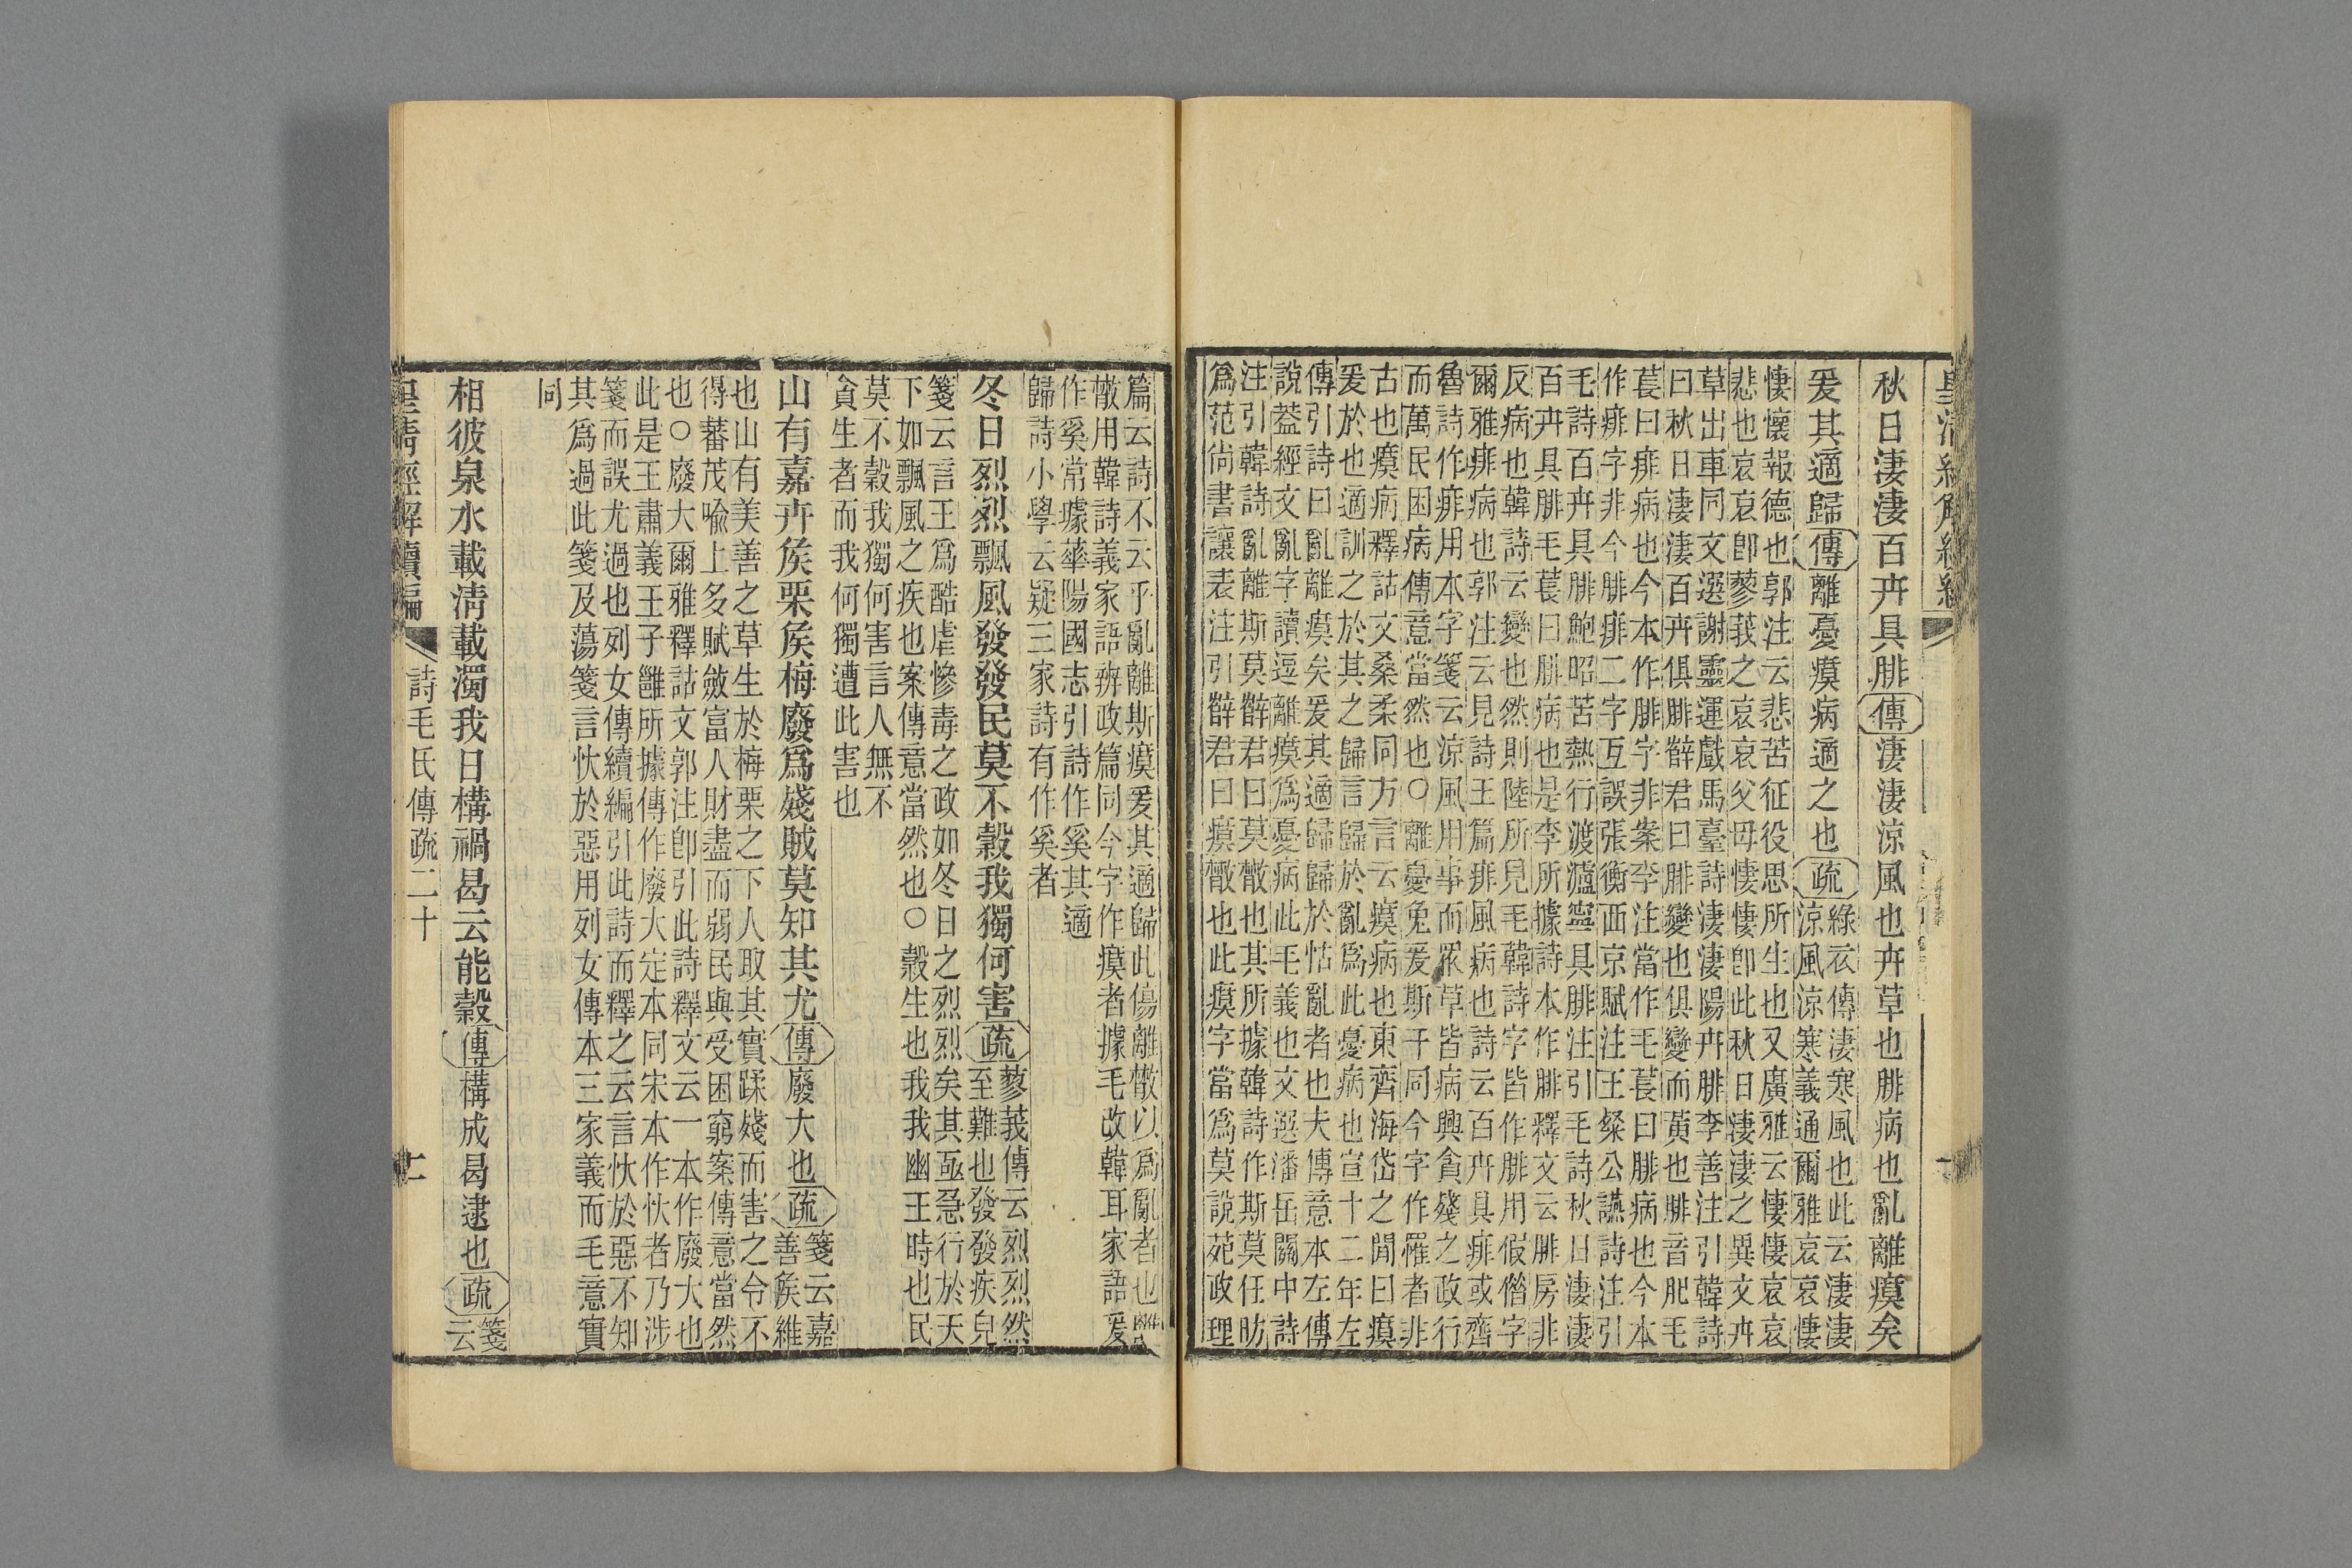 秋日淒淒百卉具腓傳淒淒涼風也卉草也腓病也亂離瘼矣
爰其適歸傳離憂瘼病適之也疏綠衣傳淒寒風也此云淒淒
涼風涼寒義通爾雅哀哀悽
悽懷報德也郭注云悲苦征役思所生也又廣雅云悽悽哀哀
悲也哀哀卽蓼莪之哀哀父母悽悽卽此秋日淒淒之異文卉
草出車同文選謝靈運戲馬臺詩淒淒陽卉腓李善注引韓詩
曰秋日淒淒百卉俱腓薛君曰腓變也俱變而黃也腓音肥毛
萇曰痱病也今本作腓字非案李注當作毛萇曰腓病也今本
作痱字非今腓痱二字互誤張衡西京賦注王粲公讌詩注引
毛詩百卉具腓鮑昭苦熱行渡瀘寧具腓注引毛詩秋日淒淒
百卉具腓毛萇曰腓病也是李所據詩本作腓釋文云腓房非
反病也韓詩云變也然則陸所見毛韓詩字皆作腓用假借字
爾雅痱病也郭注云見詩王篇痱風病也詩云百卉具痱或齊
魯詩作痱用本字箋云涼風用事而眾草皆病興貪殘之政行
而萬民困病傳意當然也○離憂免爰斯干同今字作罹者非
古也瘼病釋詁文桑柔同方言云瘼病也東齊海岱之閒曰瘼
爰於也適訓之於其之歸言歸於亂爲此憂病也宣十二年左
傳引詩曰亂離瘼矣爰其適歸歸於怙亂者也夫傳意本左傳
說葢經文亂字讀逗離瘼爲憂病此毛義也文選潘岳關中詩
注引韓詩亂離斯莫薛君曰莫㪚也其所據韓詩作斯莫任昉
爲范尙書讓表注引薛君曰瘼㪚也此瘼字當爲莫說苑政理
篇云詩不云乎亂離斯瘼爰其適歸此傷離㪚以爲亂者也
㪚用韓詩義家語辨政篇同今字作瘼者據毛改韓耳家語爰
作奚常璩華陽國志引詩作奚其適
歸詩小學云疑三家詩有作奚者
冬日烈烈飄風發發民莫不穀我獨何害疏蓼莪傳云烈烈然
至難也發發疾皃
箋云言王爲酷虐慘毒之政如冬日之烈烈矣其亟急行於天
下如飄風之疾也案傳意當然也○穀生也我我幽王時也民
莫不穀我獨何害言人無不
貪生者而我何獨遭此害也
山有嘉卉矦栗矦梅廢爲殘賊莫知其尤傳廢大也疏箋云嘉
善矦維
也山有美善之草生於梅栗之下人取其實蹂殘而害之令不
得蕃茂喻上多賦斂富人財盡而弱民與受困窮案傳意當然
也○廢大爾雅釋詁文郭注卽引此詩釋文云一本作廢大也
此是王肅義王子雝所據傳作廢大定本同宋本作忕者乃涉
箋而誤尤過也列女傳續編引此詩而釋之云言忕於惡不知
其爲過此箋及蕩箋言忕於惡用列女傳本三家義而毛意實
同
相彼泉水載淸載濁我日構禍曷云能穀傳構成曷逮也疏箋
云
皇淸經解續編 詩毛氏傳疏二十